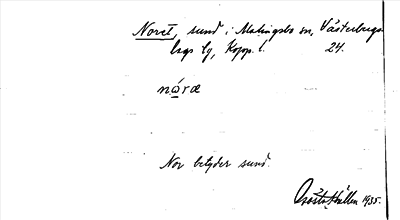 Noret, sund i Malingsbo sn, Västerbergs-
lags lg, Kopp. l. 24.
nóræ
Nor betyder sund.
Gösta Hallen 1935.